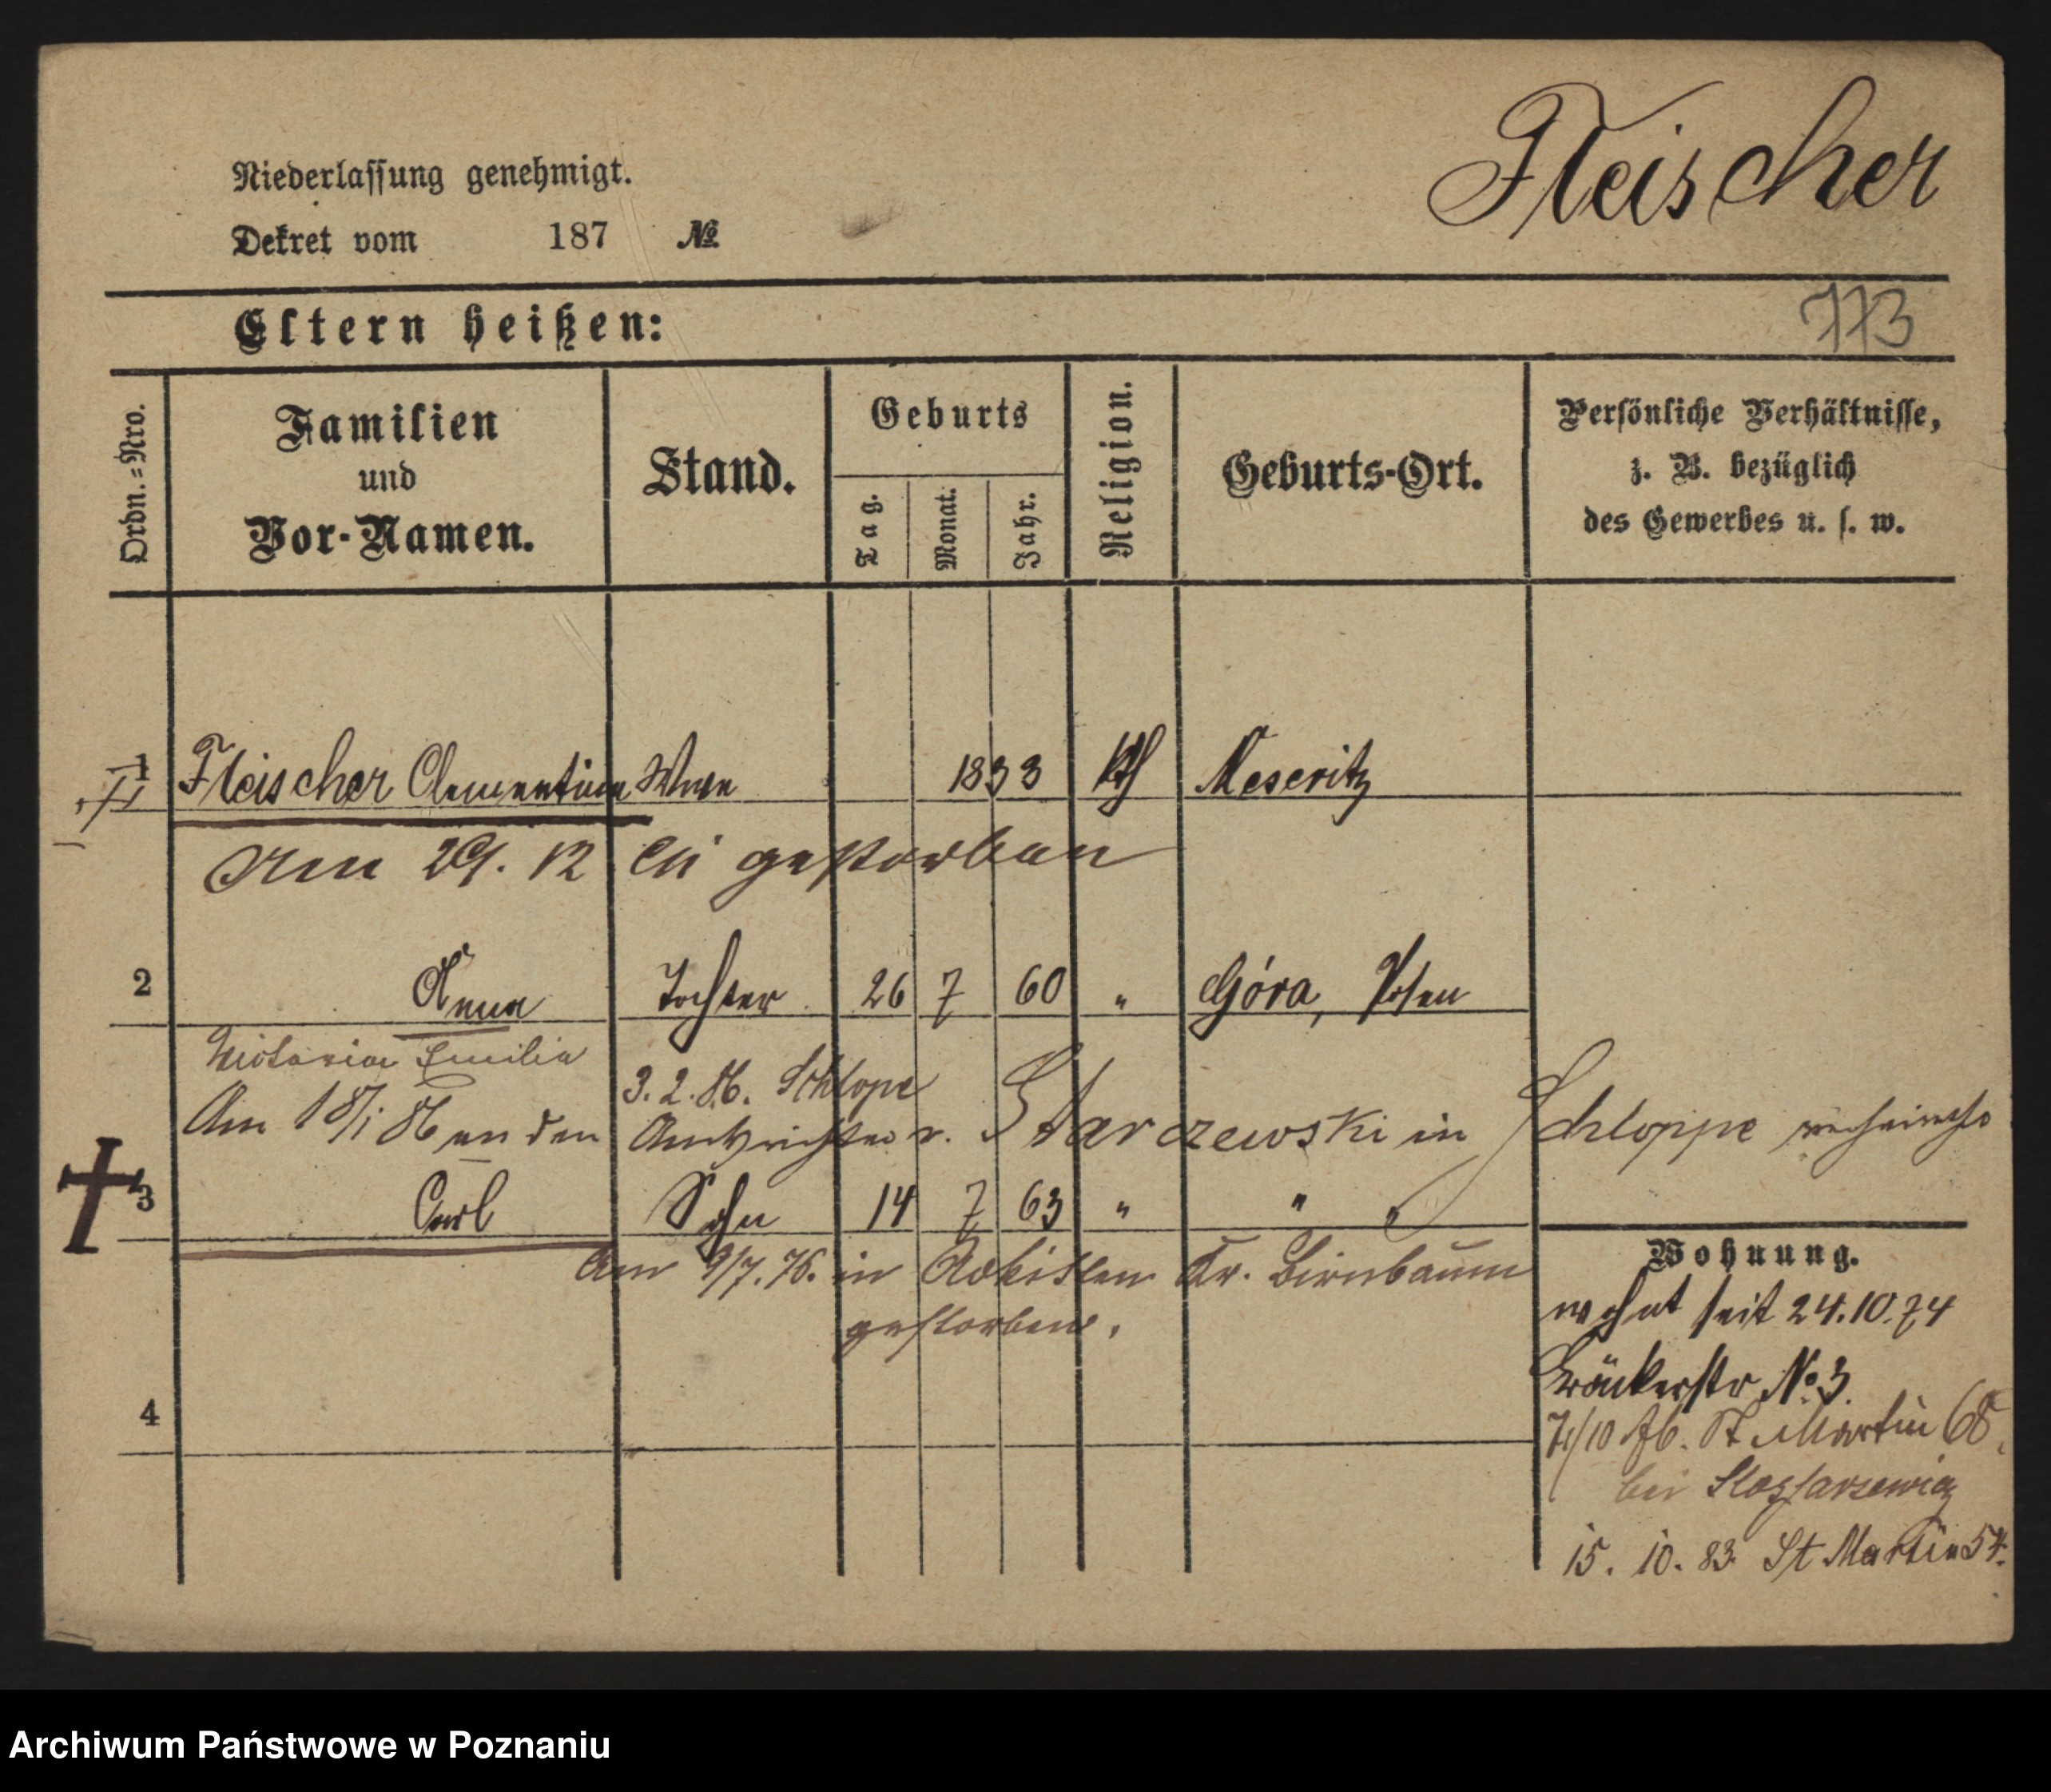 Fleischer
Niederlassung genehmigt.
Dekret vom 187 №
Eltern heißen:
773
Ordn.=Nro.
Familien
und
Vor-Namen.
Stand.
Geburts
Tag.
Monat.
Jahr.
Religion.
Geburts-Ort.
Persönliche Verhältnisse,
z. B. bezüglich
des Gewerbes u. s. w.
1 Fleischer Clementine Wwe 1833 kth Meseritz
Am 29. 12 gestorben
2 Anna Tochter 26 7 60 " Góra, Posen
Victoria Emilia
3. 2. 86. Schlope
Am 18/1 86 an den Amtsrichter v. Starczewski in Schloppe verheirathet
3 Carl Sohn 14 7 63 " " "
Am 9/7. 76. in Kr. Birnbaum
gestorben.
4
Wohnung.
wohnt seit 24.10.74
Bäckerstr No 3.
7/10 St Martin 68
bei
15. 10. 83. St Martin 54.
Archiwum Państwowe w Poznaniu